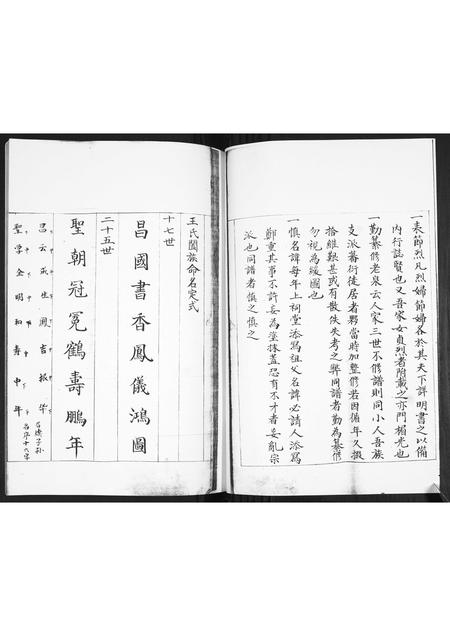 一表節烈凡烈婦節婦各於其天下詳明書之以備
內行誌賢也又吾家女貞烈者附載之亦門楣光也
一勤纂修老泉云人家三世不修譜則同小人吾族
支派蕃衍徙居者夥當時加整修若因循年久搜
拾維艱甚或有散佚失考之弊同譜者勤為纂修
勿視為緩圖也
一慎名諱每年上祠堂添寫祖父名諱必請人添寫
鄭重其事不許妄為塗抹蓋恐有不才者妄亂宗
派也同譜者慎之慎之
王氏闔族命名定式
十七世
昌國書香鳳儀鴻圖
二十五世
聖朝冠冕鶴壽鵬年
昌云成生鳳吉振華
呂堍子孫
聖學金明和壽中年
名序十六字